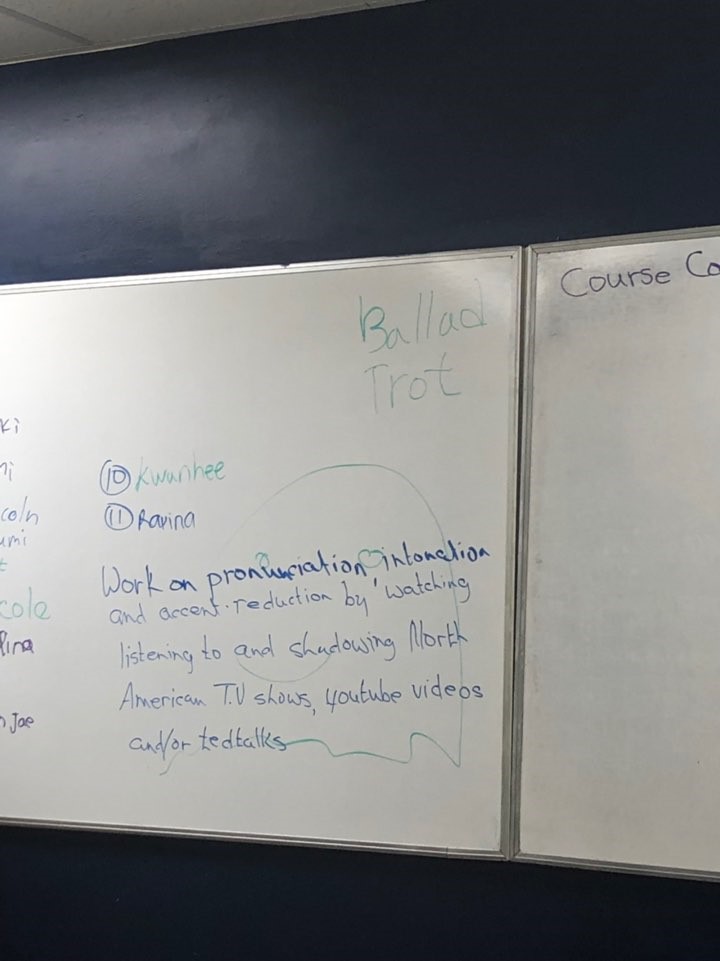 Course Co
Ballad
Trot
ki
ni
coln
umi
t
cole
lina
n Jae
⑩ Kwanhee
⑪ Ravina
Work on pronunciation, intonation
and accent reduction by watching
listening to and shadowing North
American T.V shows, youtube videos
and/or tedtalks